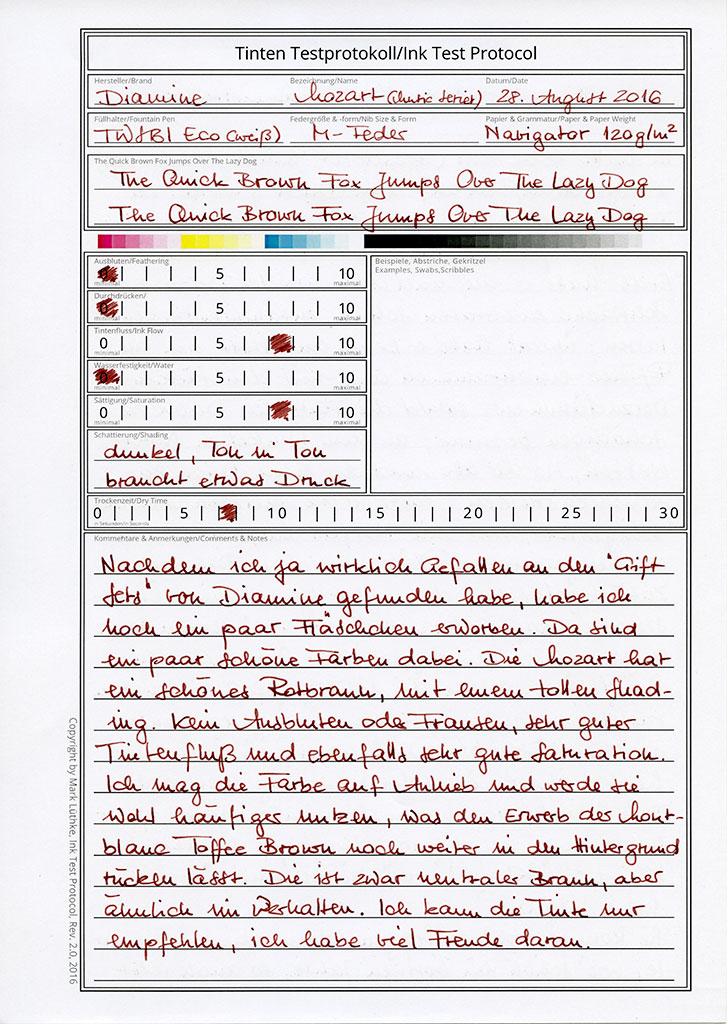 Tinten Testprotokoll/Ink Test Protocol
Hersteller/Brand Bezeichnung/Name Datum/Date
Diamine Mozart (Music Series) 28. August 2016
Füllhalter/Fountain Pen Federgröße & -form/Nib Size & Form Papier & Grammatur/Paper & Paper Weight
TWSBI Eco (weiß) M-Feder Navigator 120g/m²
The Quick Brown Fox Jumps Over The Lazy Dog
The Quick Brown Fox Jumps Over The Lazy Dog
The Quick Brown Fox Jumps Over The Lazy Dog
Ausbluten/Feathering
0 5 10
minimal maximal
Durchdrücken/
0 5 10
minimal maximal
Tintenfluss/Ink Flow
0 5 10
minimal maximal
Wasserfestigkeit/Water
0 5 10
minimal maximal
Sättigung/Saturation
0 5 10
minimal maximal
Schattierung/Shading
dunkel, Ton in Ton
braucht etwas Druck
Beispiele, Abstriche, Gekritzel
Examples, Swabs,Scribbles
Trockenzeit/Dry Time
0 5 10 15 20 25 30
in Sekunden/in Seconds
Kommentare & Anmerkungen/Comments & Notes
Nachdem ich ja wirklich Gefallen an den "Gift
Sets" von Diamine gefunden habe, habe ich
noch ein paar Fläschchen erworben. Da sind
ein paar schöne Farben dabei. Die Mozart hat
ein schönes Rotbraun, mit einem tollen Shad-
ing. Kein Ausbluten oder Fransen, sehr guter
Tintenfluß und ebenfalls sehr gute Saturation.
Ich mag die Farbe auf Anhieb und werde sie
wohl häufiger nutzen, was den Erwerb des Mont-
blanc Toffee Brown noch weiter in den Hintergrund
rücken lässt. Die ist zwar neutraler Braun, aber
ähnlich im Verhalten. Ich kann die Tinte nur
empfehlen, ich habe viel Freude daran.
Copyright by Mark Lüthke, Ink Test Protocol, Rev. 2.0, 2016